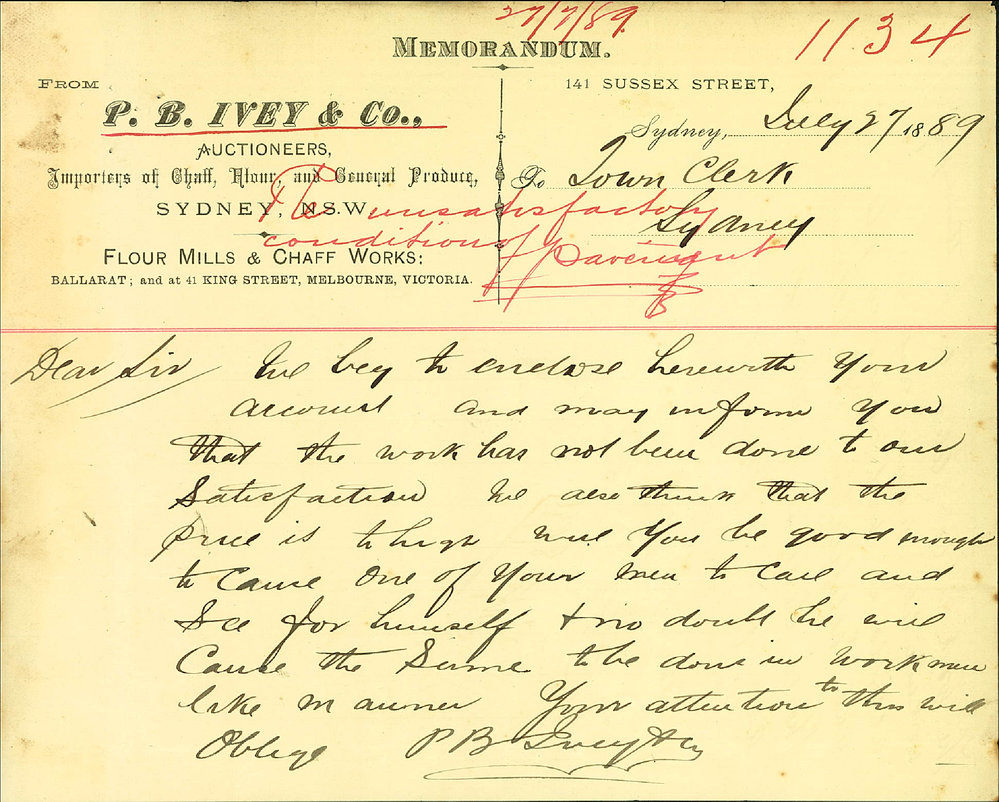 27/7/89.
1134
MEMORANDUM.
FROM
P. B. IVEY & CO.,
AUCTIONEERS,
Importers of Chaff, Flour, and General Produce,
SYDNEY, N.S.W.
FLOUR MILLS & CHAFF WORKS:
BALLARAT; and at 41 KING STREET, MELBOURNE, VICTORIA.
141 SUSSEX STREET,
Sydney, July 27 1889
To Town Clerk
Sydney
Re unsatisfactory
condition of
Pavement
Dear Sir We beg to enclose herewith Your
account and may inform you
that the work has not been done to our
Satisfaction We also think that the
price is to high will You be good enough
to Cause One of Your men to Call and
See for himself & no doubt he will
Cause the Same to be done in workman
like manner Your attention to this will
Oblige P B Ivey & Co